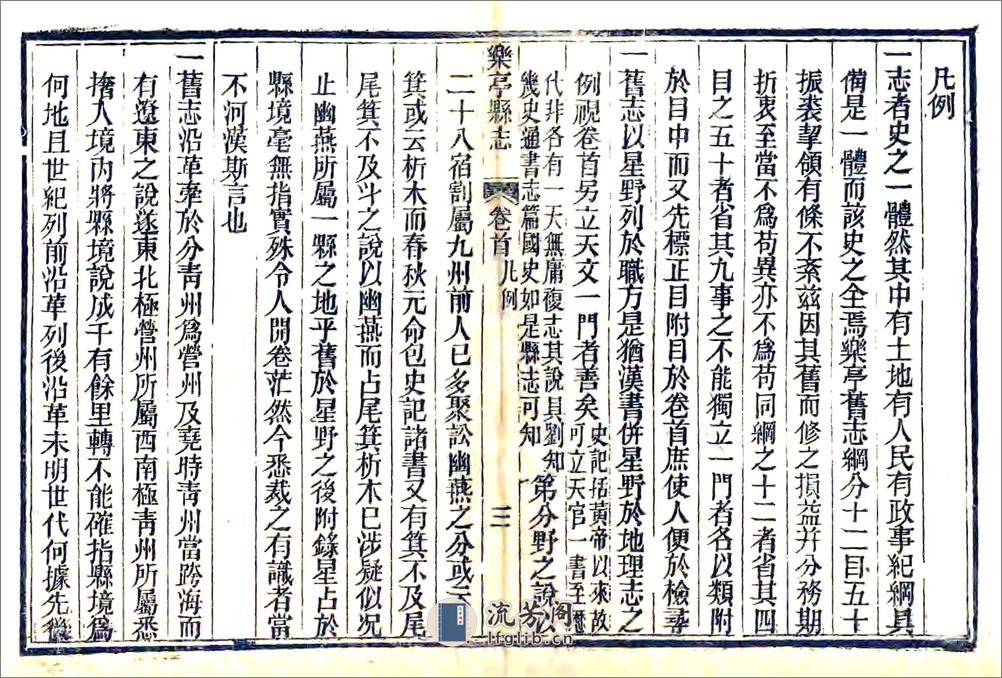 凡例
一志者史之一體然其中有土地有人民有政事紀綱具
備是一體而該史之全焉樂亭舊志綱分十二目五十
振裘挈領有條不紊茲因其舊而修之損益幷分務期
折衷至當不爲苟異亦不爲苟同綱之十二者省其四
目之五十者省其九事之不能獨立一門者各以類附
於目中而又先標正目附目於卷首庶使人便於檢尋
一舊志以星野列於職方是猶漢書併星野於地理志之
例視卷首另立天文一門者善矣史記括黃帝以來故
可立天官一書至歷
代非各有一天無庸複志其說具劉知
幾史通書志篇國史如是縣志可知第分野之說以
樂亭縣志 卷首 凡例 三
二十八宿割屬九州前人已多聚訟幽燕之分或云
箕或云析木而春秋元命包史記諸書又有箕不及尾
尾箕不及斗之說以幽燕而占尾箕析木已涉疑似况
止幽燕所屬一縣之地乎舊於星野之後附錄星占於
縣境毫無指實殊令人開卷茫然今悉裁之有識者當
不河漢斯言也
一舊志沿革牽於分靑州爲營州及堯時靑州當跨海而
有遼東之說遂東北極營州所屬西南極靑州所屬悉
擕入境內將縣境說成千有餘里轉不能確指縣境爲
何地且世紀列前沿革列後沿革未明世代何據先後
流芳閣
lfglib.cn